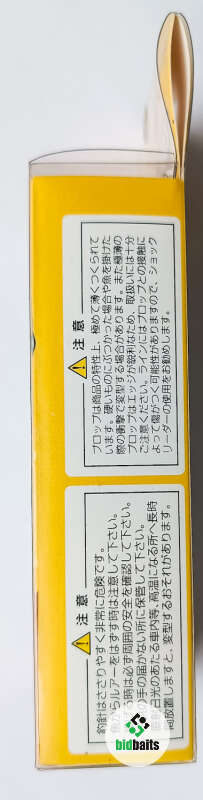 注意
釣針はささりやすく非常に危険です。
魚からルアーをはずす時は注意して下さい。
る時は必ず周囲の安全を確認して下さい。
の手の届かない所に保管して下さい。
日光のあたる車内等、高温になる所へ長時
間放置しますと、変型するおそれがあります。
注意
プロップは商品の特性上、極めて薄くつくられて
います。硬いものにぶつかった場合や魚を掛けた
際の衝撃で変型する場合があります。また極薄の
プロップはエッジが鋭利なため、取扱いには十分
ご注意ください。ラインにはプロップとの接触に
よって傷がつく可能性がありますので、ショック
リーダーの使用をお勧めします。
bidbaits